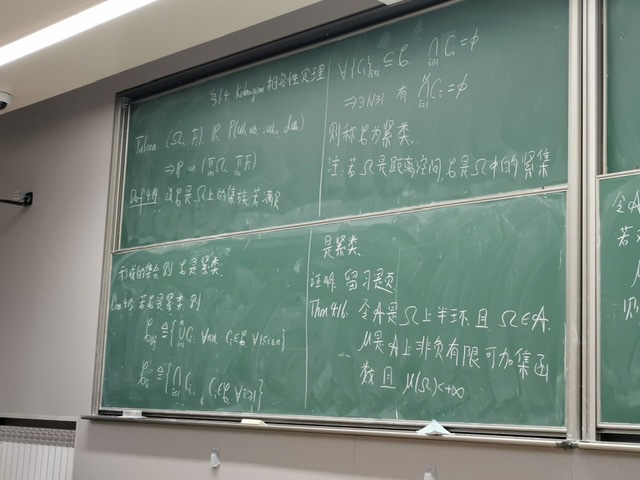 §1.4. Kolmogorov 相容性定理
Tulcea (Ω, F). P. P(ω₁, ω₂…ωₙ, dωₙ)
⇒ P on (∏Ω, ∏F)
Def 4.14. 设 C 是 Ω 上的集族, 若满足
∀{C_i}_{i≥1} ⊆ C. ⋂_{i≥1} C_i = φ
⇒ ∃N≥1 有 ⋂_{i=1}^{N} C_i = φ
则称 C 为紧类.
注. 若 Ω 是距离空间, C 是 Ω 中的紧集
形成的集合, 则 C 是紧类.
Lem 4.15. 若 C 是紧类, 则
≜ {⋃_{i=1}^{n} C_i, ∀n≥1, C_i∈C, ∀1≤i≤n}
C_δ ≜ {⋂_{i=1}^{∞} C_i, C_i∈C, ∀i≥1}
是紧类.
证明. 留习题.
Thm 4.16. 令 A 是 Ω 上半环, 且 Ω∈A.
μ 是 A 上非负有限可加集函
数且 μ(Ω)<+∞
令 A
若
μ
则